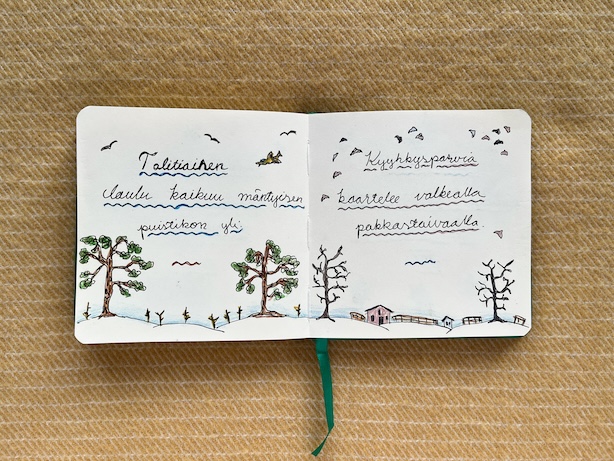 Talitiaisen
laulu kaikuu mäntyisen
puistikon yli.
Kyyhkysparvia
kaartelee valkealla
pakkastaivaalla.